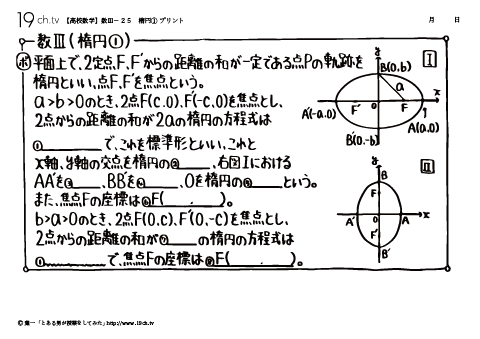 19ch.tv 【高校数学】数Ⅲ-25 楕円① プリント 月 日
数Ⅲ(楕円①)
ポ 平面上で、2定点F、F'からの距離の和が一定である点Pの軌跡を
楕円といい、点F、F'を焦点という。
a>b>0のとき、2点F(c,0)、F'(-c,0)を焦点とし、
2点からの距離の和が2aの楕円の方程式は
① で、これを標準形といい、これと
x軸、y軸の交点を楕円の② 、右図Ⅰにおける
AA'を③ 、BB'を④ 、Oを楕円の⑤ という。
また、焦点Fの座標は⑥F( )。
b>a>0のとき、2点F(0,c)、F'(0,-c)を焦点とし、
2点からの距離の和が⑦ の楕円の方程式は
① で、焦点Fの座標は⑧F( )。
Ⅰ
y
B(0,b)
a
x
F' O F
A'(-a,0) A(a,0)
B'(0,-b)
Ⅱ
y
B
F
A' O A x
F'
B'
© 葉一「とある男が授業をしてみた」http://www.19ch.tv